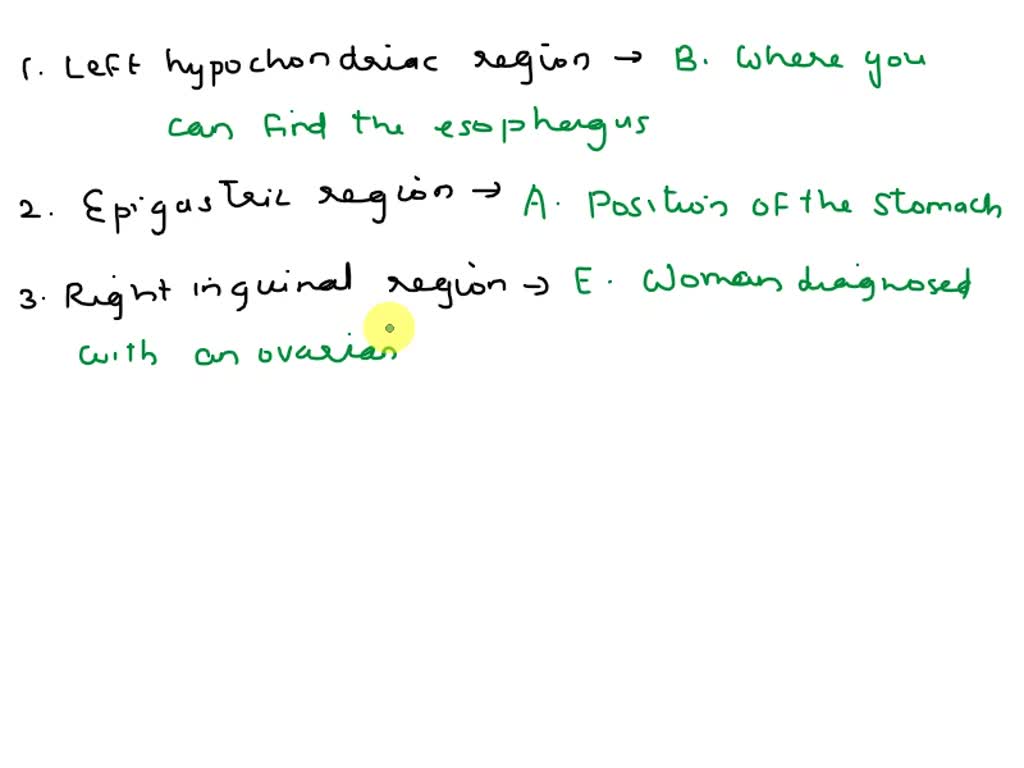 1. Left hypochondriac region → B. Where you
can find the esophergus
2. Epigastric region → A. Position of the stomach
3. Right inguinal region → E. Woman diagnosed
with an ovarian